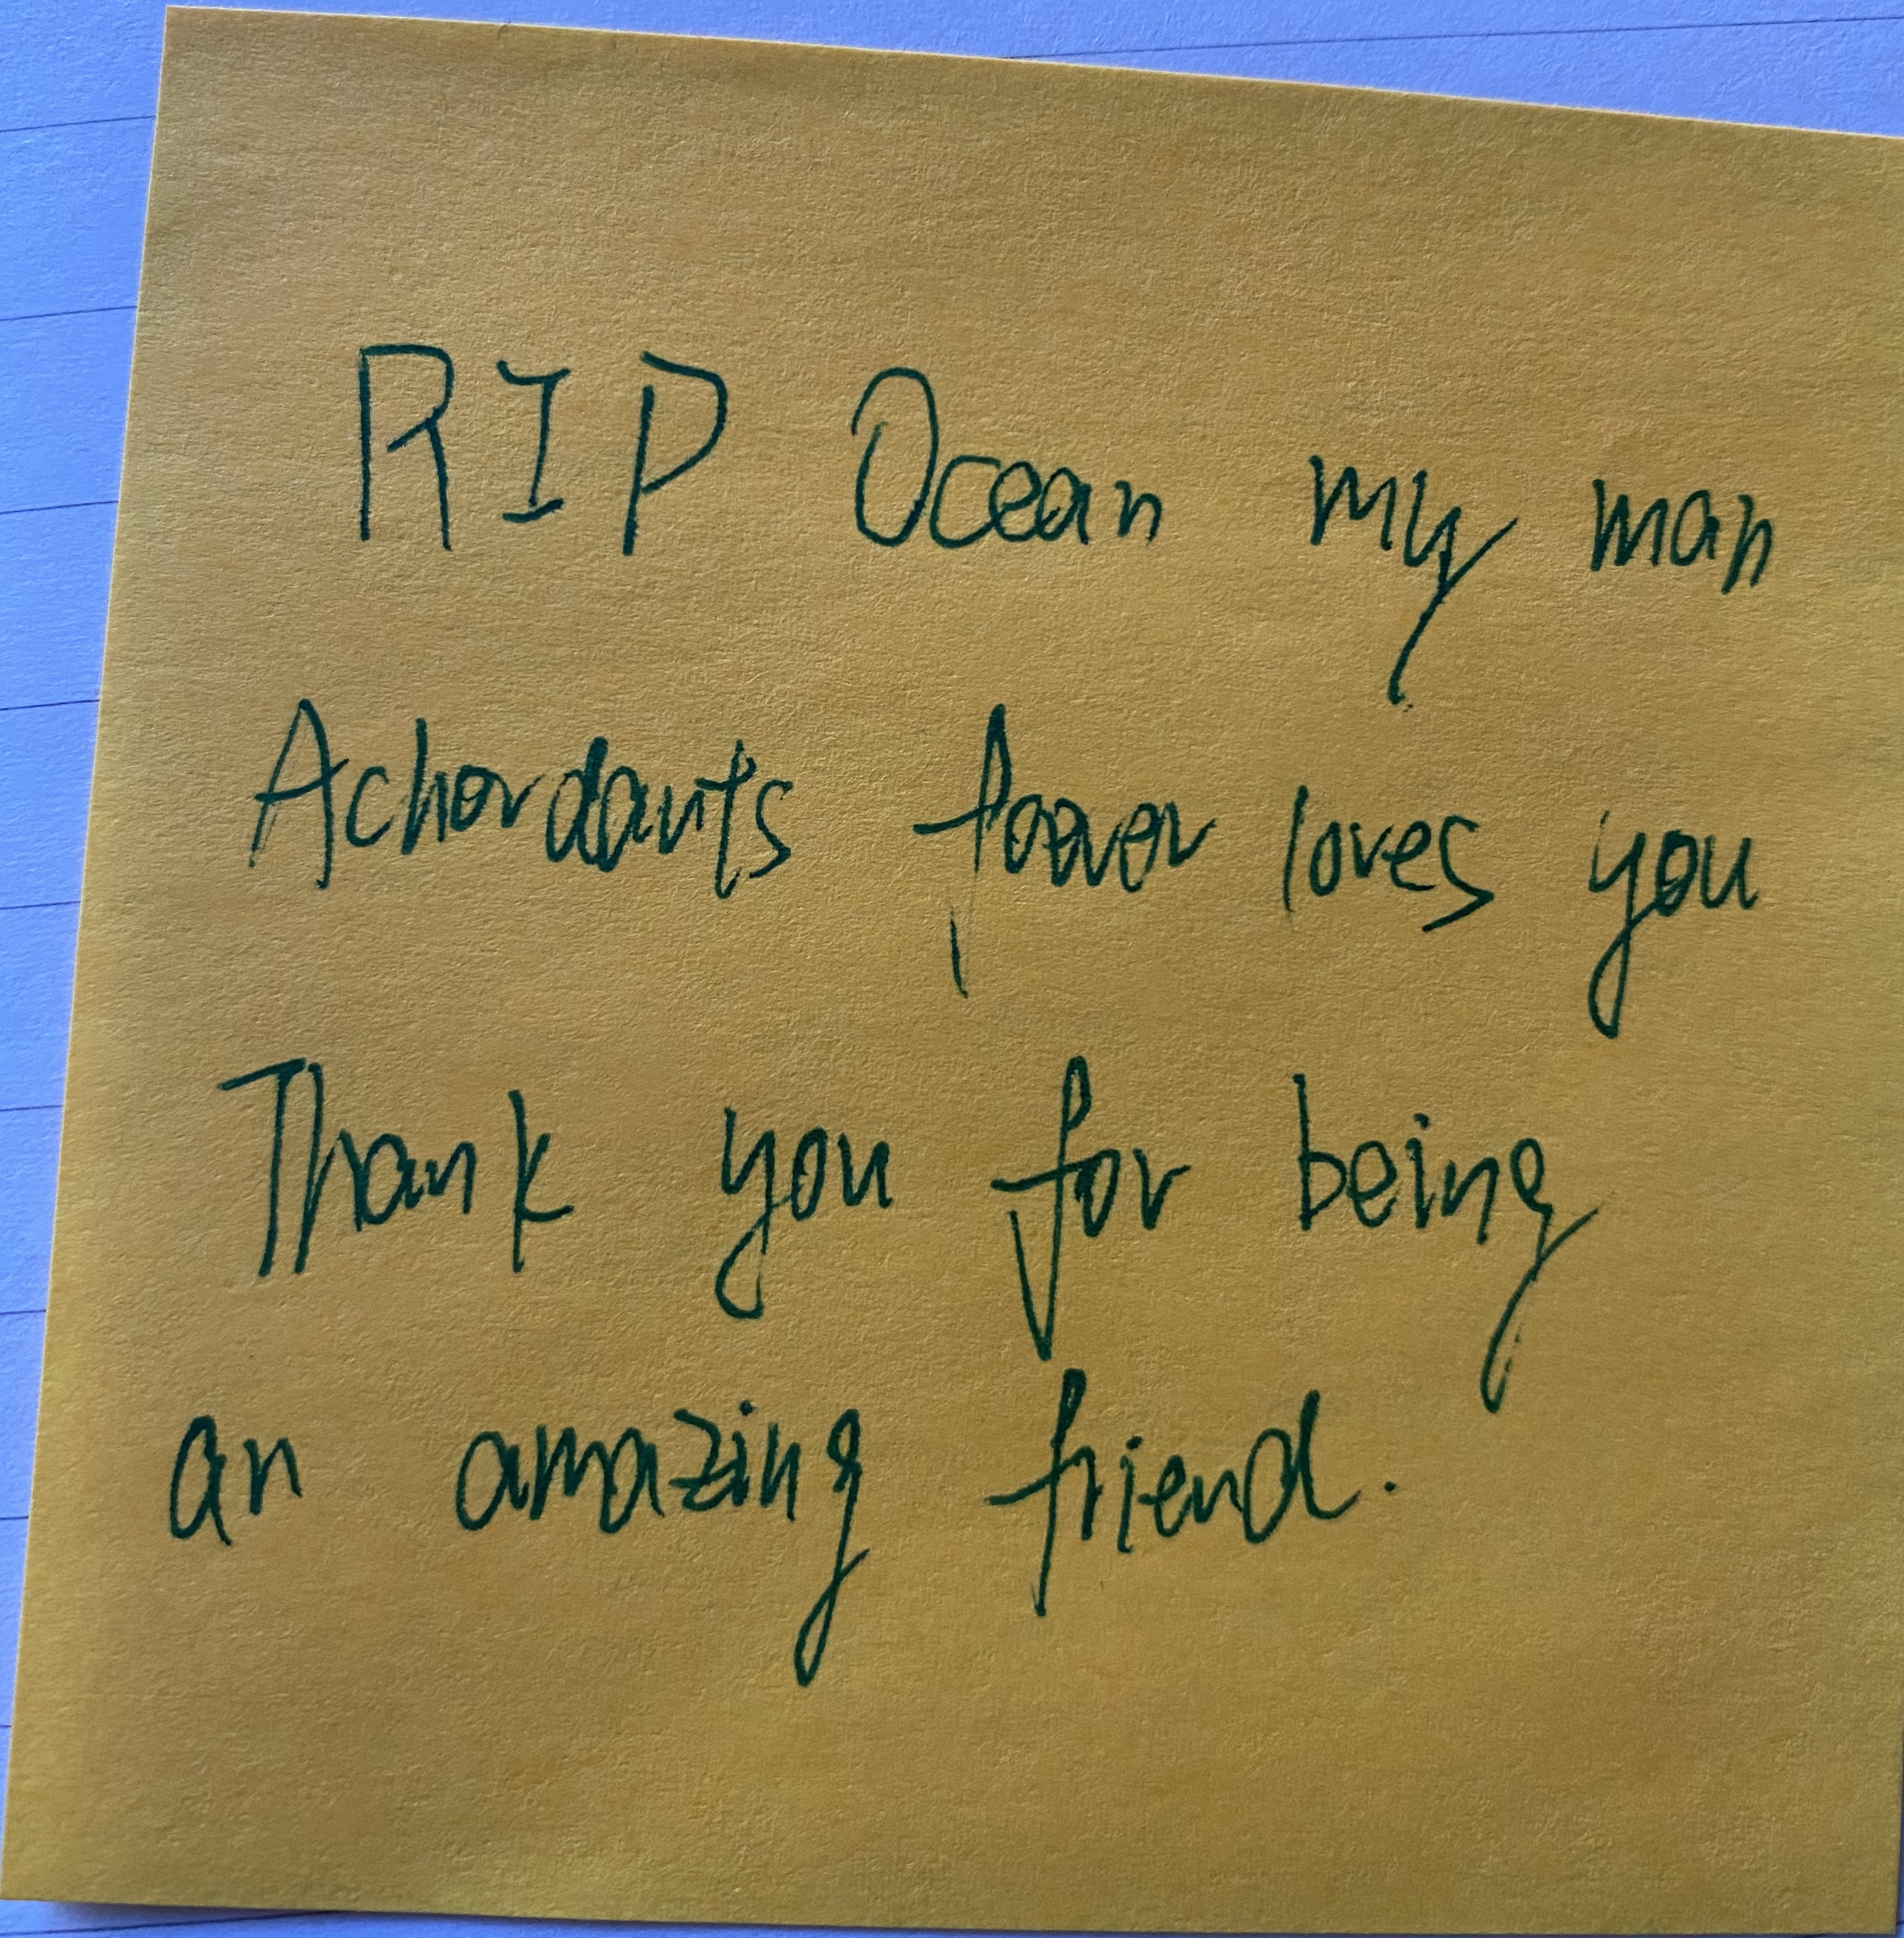 RIP Ocean my man
Achordants foever loves you
Thank you for being
an amazing friend.